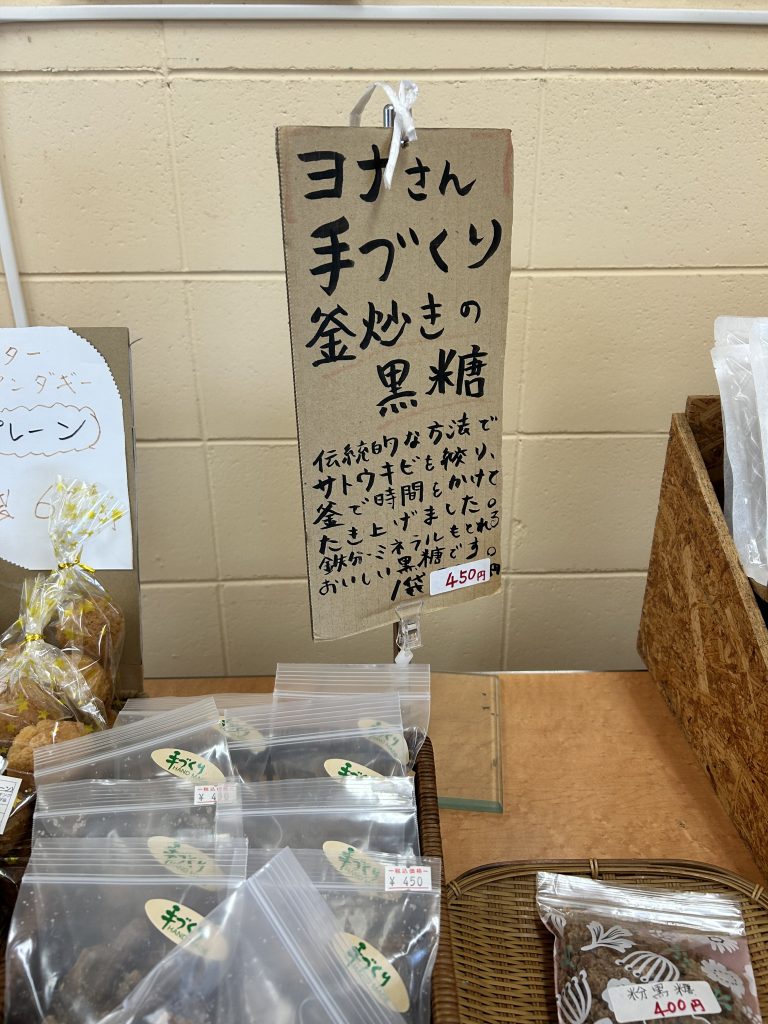 ヨナさん
手づくり
釜炊きの
黒糖
伝統的な方法で
サトウキビも絞り、
釜で時間をかけて
たき上げました。
鉄分、ミネラルもとれる
おいしい黒糖です。
1袋 450円
ター
ンダギー
プレーン
手づくり
HAND MA
手づくり
ー税込価格ー
¥ 4
手づくり
手づくり
ー税込価格ー
¥ 450
手づくり
HAND
手づくり
粉黒糖
400円